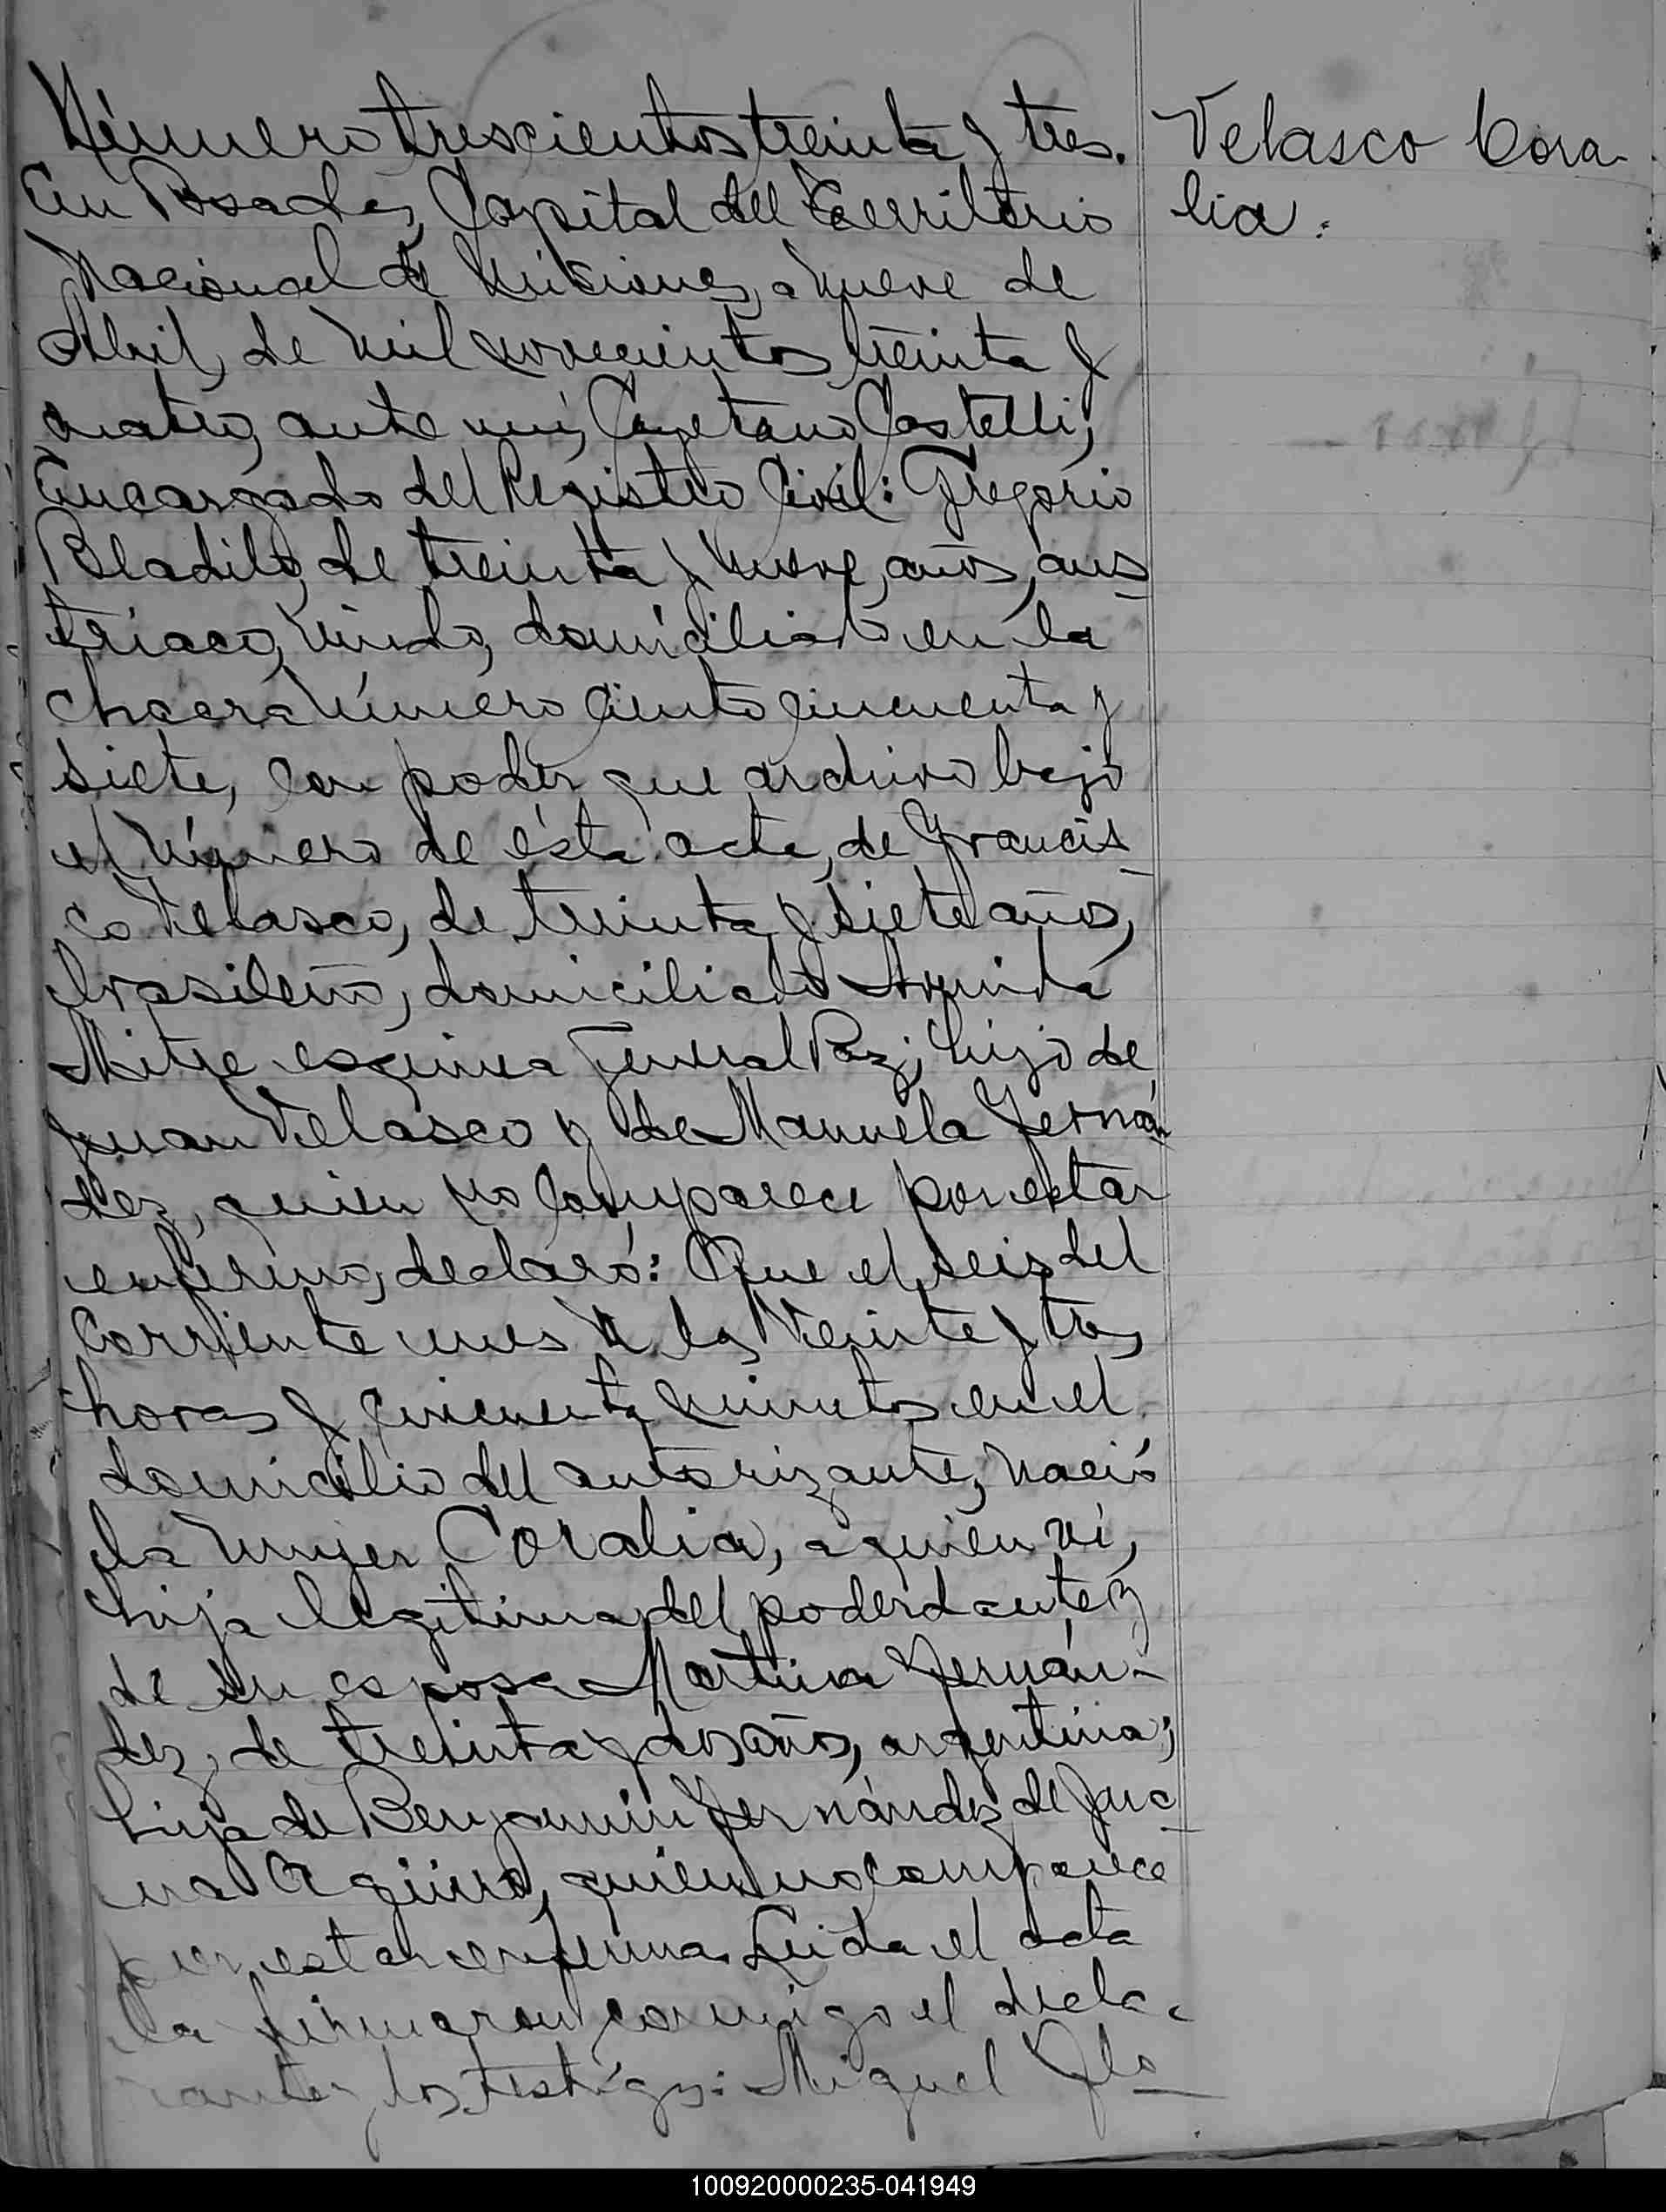 Número trescientos treinta y tres.
En Posadas, Capital del Territorio
Nacional de Misiones, a nueve de
Abril, de mil novecientos treinta y
cuatro, ante mí, Cayetano Castelli,
Encargado del Registro Civil: Gregorio
Bladilo, de treinta y nueve, años, aus
tríaco, viudo, domiciliado en la
chacra número ciento cincuenta y
siete, con poder que archivo bajo
el número de ésta acta, de Francis
co Velasco, de treinta y siete años,
brasileño, domiciliado Avenida
Mitre esquina General Paz; hijo de
Juan Velasco y de Manuela Fernán
dez, quien no comparece por estar
enfermo, declaró: Que el seis del
corriente mes a las veinte y tres
horas y cincuenta minutos en el
domicilio del autorizante, nació
la mujer Coralia, a quien ví,
hija legítima del poderdante y
de su esposa Martina Fernán-
dez, de treinta y dos años, argentina;
hija de Benjamín Fernández de Jua
na Aquino, quien no comparece
por estar enferma. Leida el acta
la firmaron conmigo el decla-
rante y los testigos: Miguel
Velasco Cora-
lia.
100920000235-041949